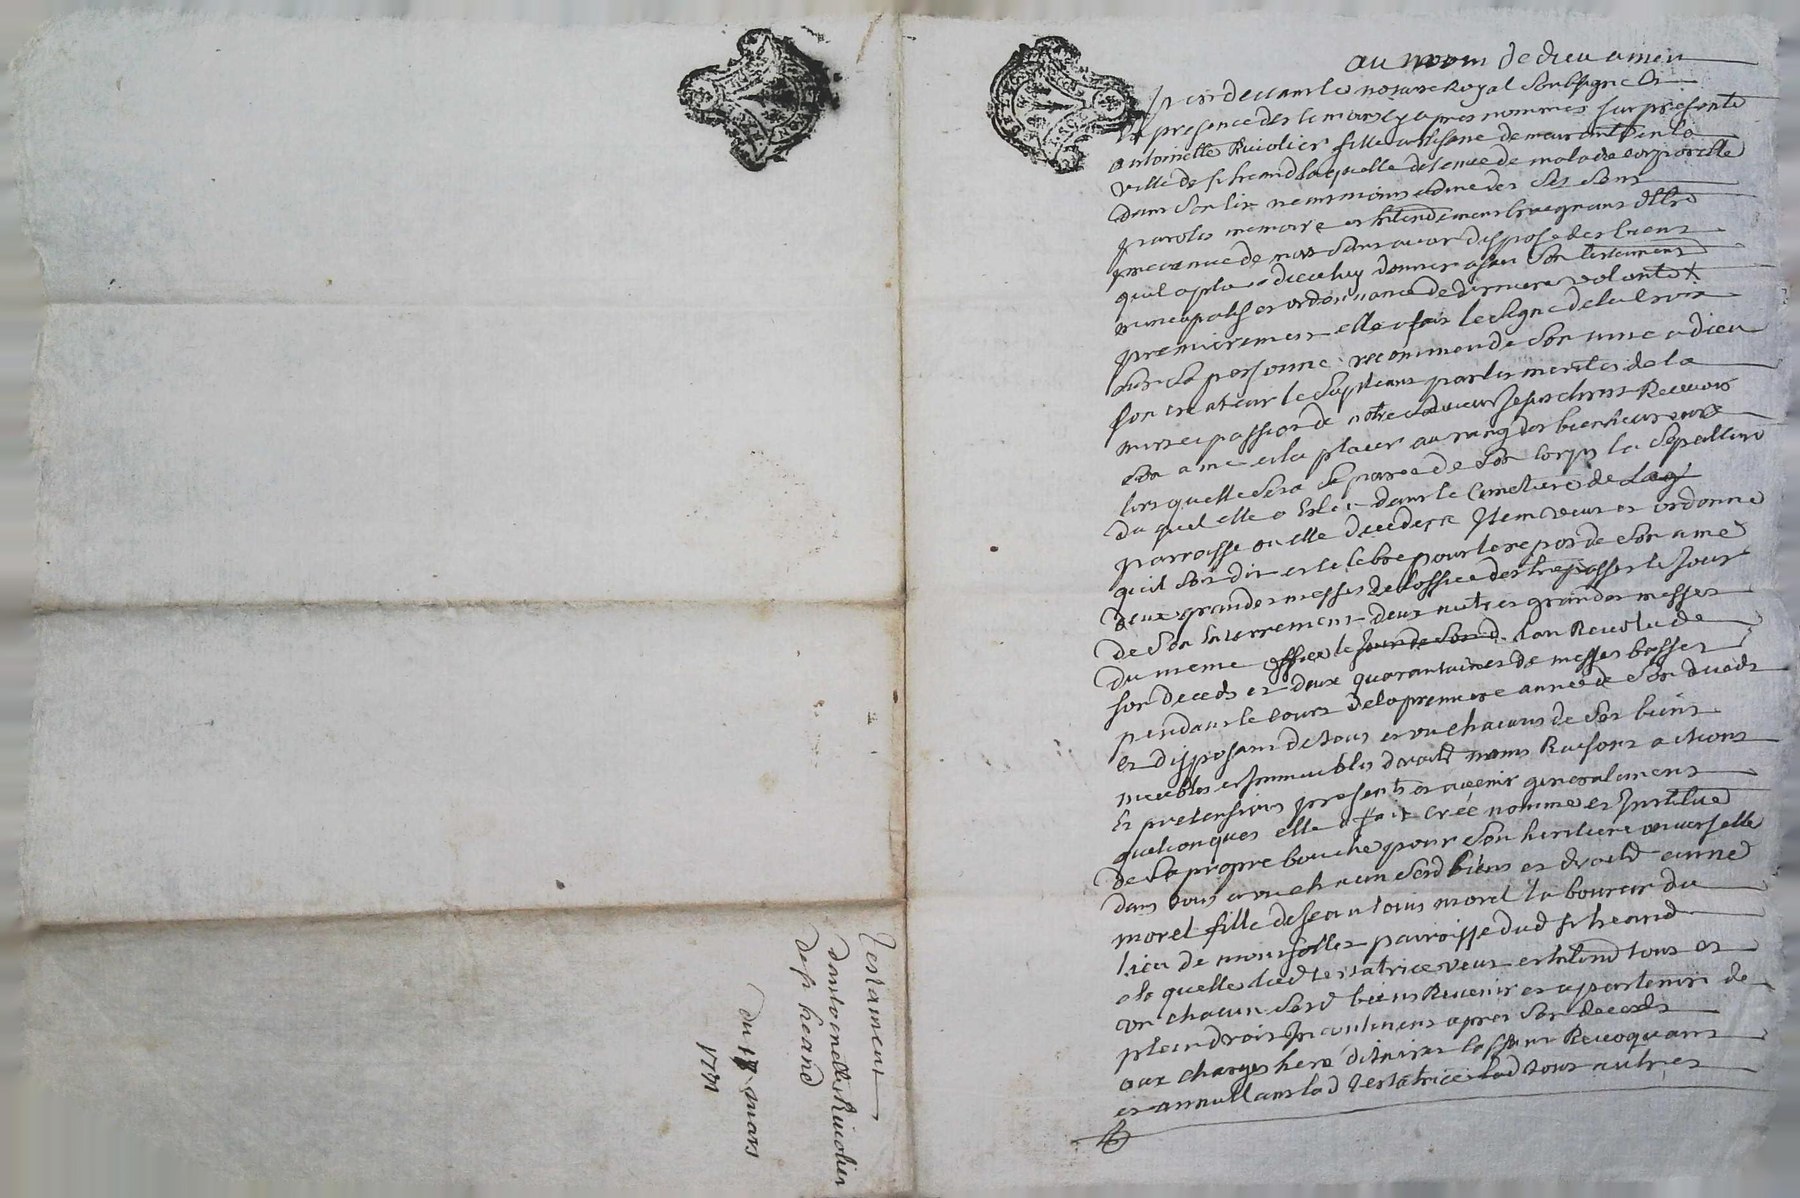 au nom de dieu amen
Pardevant le notaire Royal Soubsigné Et
En presence des temoins cy apres nommes fut presente
antoinette Ruiolier fille artisane demeurant en la
ville de st heand laquelle detenue de maladie corporelle
dans son lit neantmoins saine des ses sens
parolle memoire et Entendement Craignant d'Etre
prevenue de mort sans avoir disposé des biens
quil a plu a dieu luy donner a fait Son testament
nuncupatif et ordonnance de derniere volonté
premierement elle a fait le Signe de la Croix
sur Sa personne recommande Son ame a dieu
Son createur le Supliant par les merites de la
mort et passion de notre Sauveur Jesus christ Recevoir
son ame et la placer au rang des bienheureux
lors quelle sera separée de son corps la Sepulture
du quel elle a Esleu dans le Cimetiere de la
parroisse ou elle decedera Item veut et ordonne
quil soit dit et celebré pour le repos de Son ame
deux grandes messes de loffice des trepasses le Jour
de Son Enterrement deux autres grandes messes
du meme office le lan Revolu de
son deceds et deux quarantaines de messes basses
pendant le cours de la premiere année de Son deceds
et disposant de tous et un chacuns de Ses biens
meubles et Immeubles droits noms Raisons actions
Et pretensions presents et avenir generalement
quelconques elle a fait creé nommé et Institué
de Sa propre bouche pour Son heritiere universelle
dans tous et un chacun Sesd biens et droits anne
morel fille de Jean louis morel laboureur du
lieu de parroisse dud st heand
a la quelle lad testatrice veut et Entend tous et
un chacun Sesd biens Revenir et appartenir de
plein droit Incontinent apres Son deceds
aux charges hereditaires Revoquant
et annullant lad testatrice tous autres
Testament
dantoinette Ruiolier
de st heand
du mars
1771